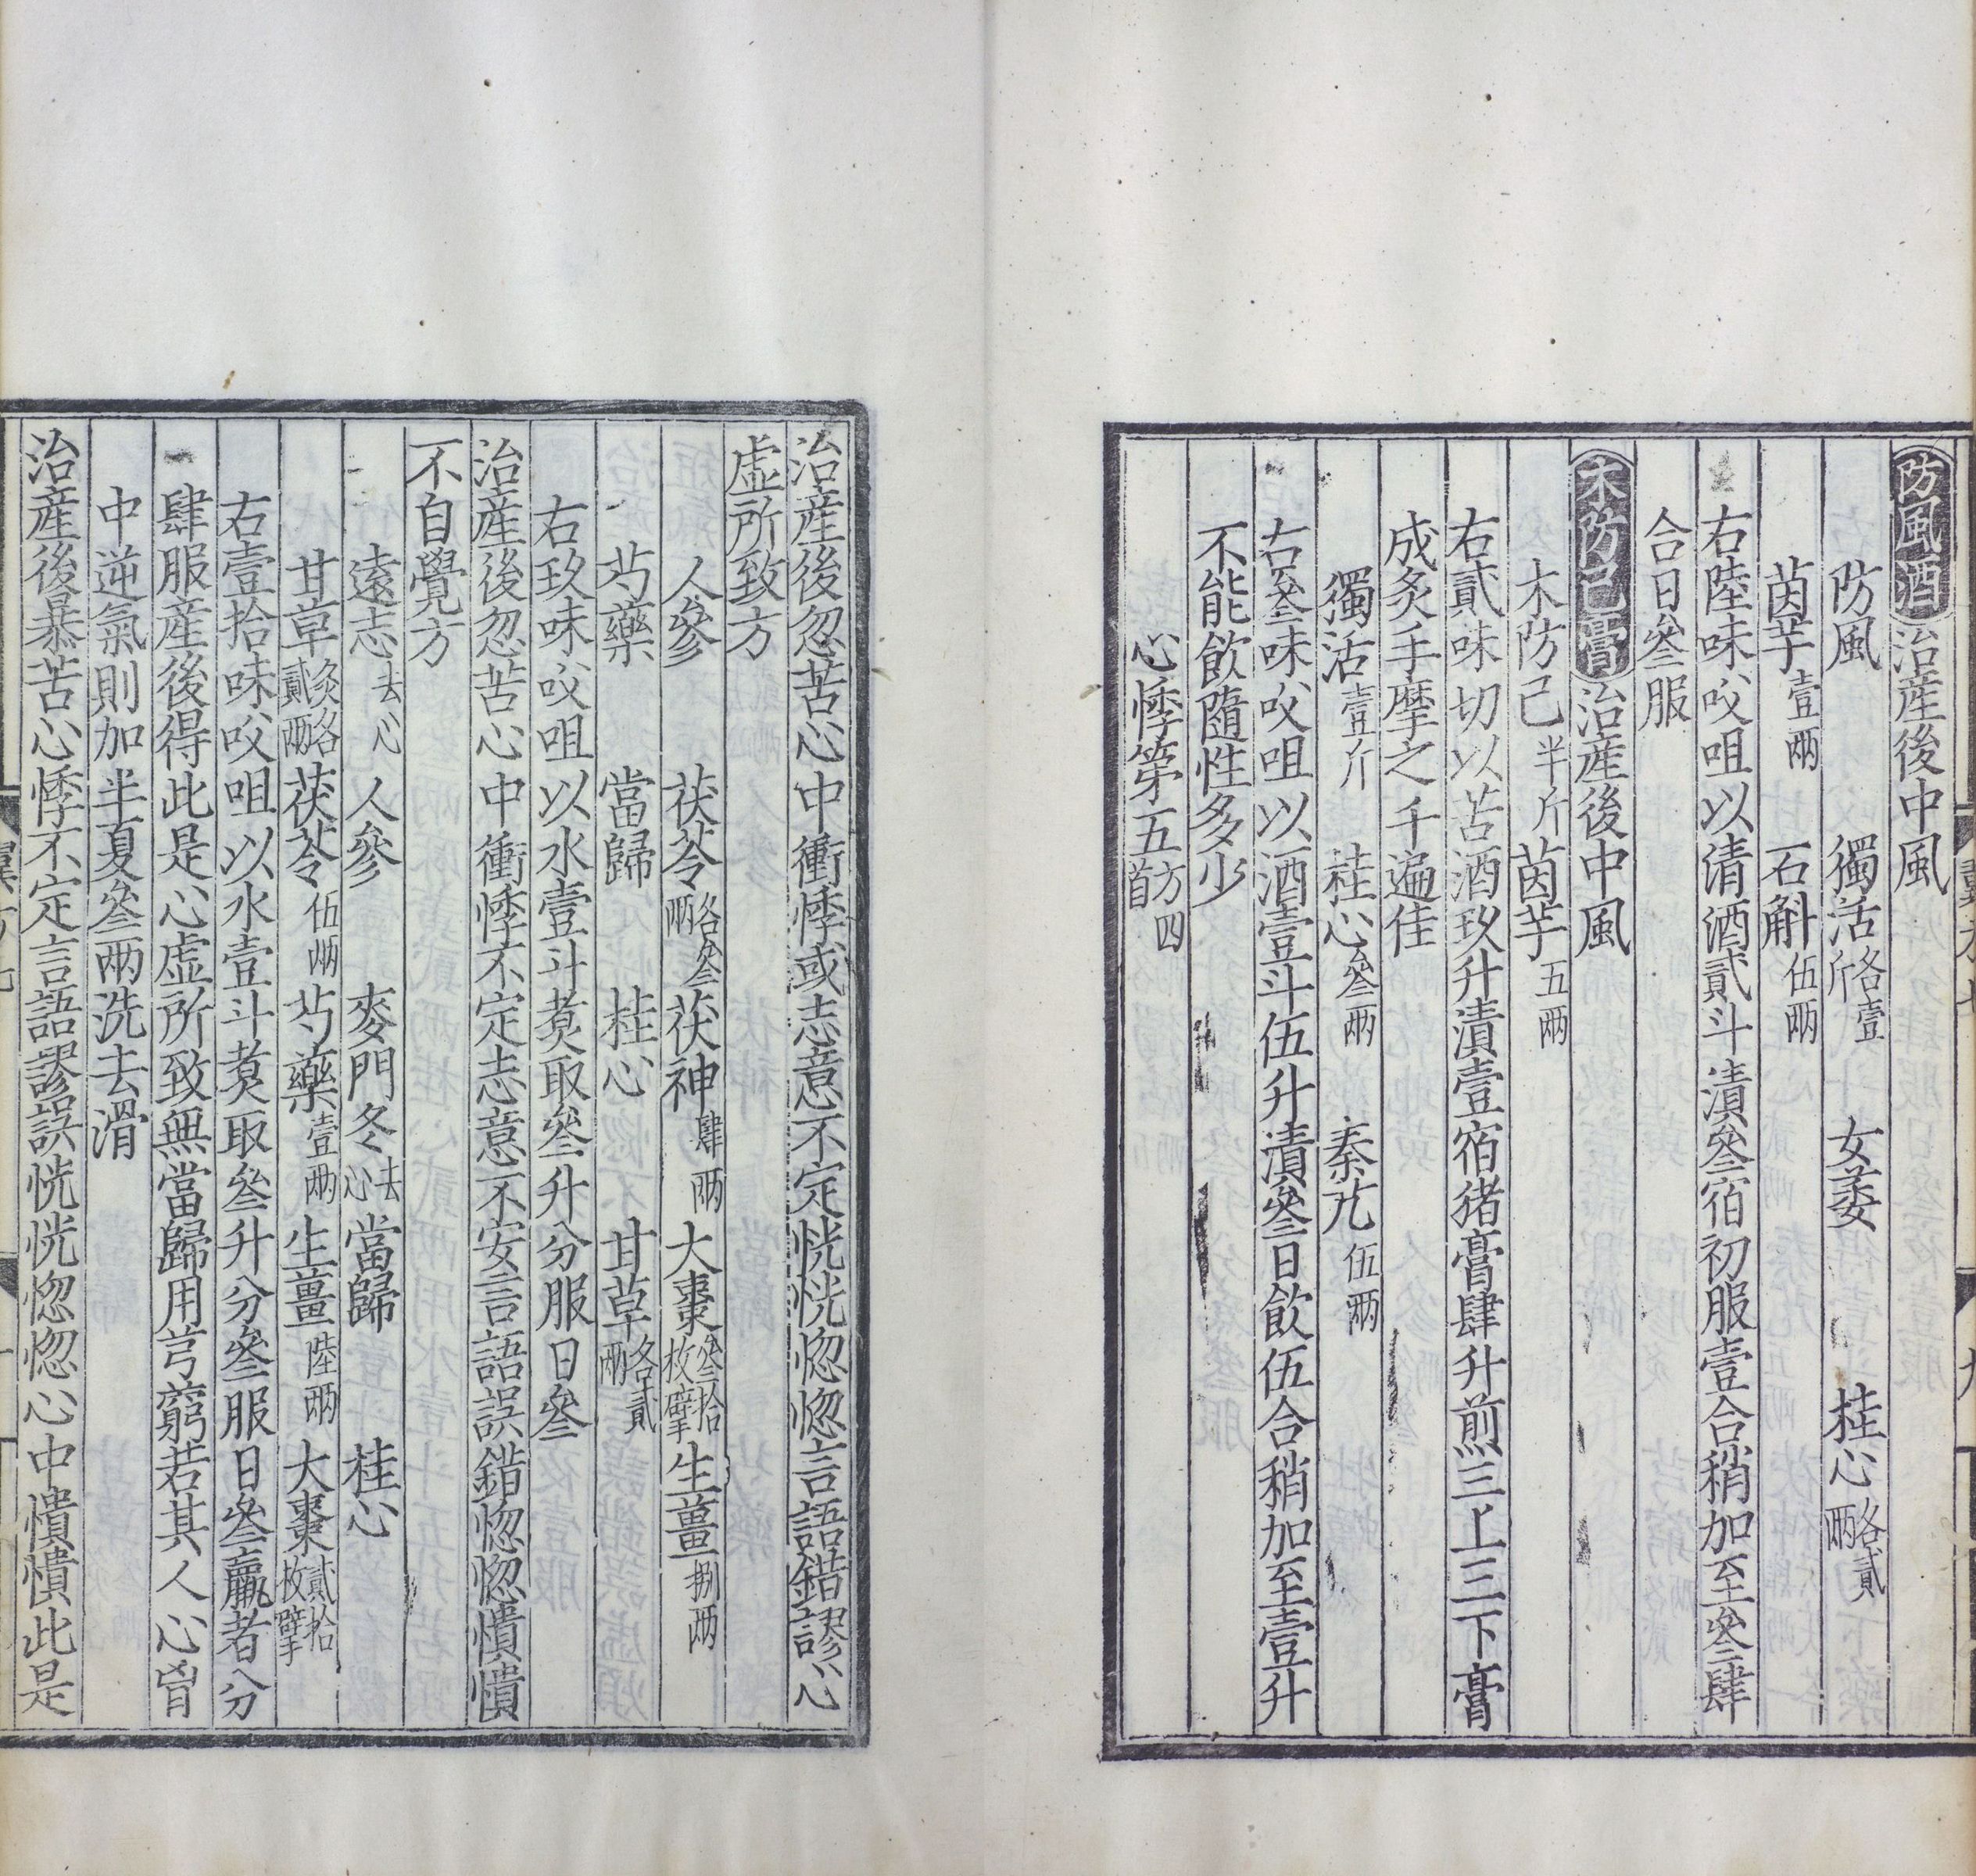 防風酒治産後中風
防風 獨活各壹斤 女萎 桂心各貳兩
茵芋壹兩 石斛伍兩
右陸味㕮咀以清酒貳斗漬叄宿初服壹合稍加至叄肆
合日叄服
木防己膏治産後中風
木防己半斤 茵芋五兩
右貳味切以苦酒玖升漬壹宿猪膏肆升煎三上三下膏
成炙手摩之千遍佳
獨活壹斤 桂心叄兩 秦艽伍兩
右叄味㕮咀以酒壹斗伍升漬叄日飲伍合稍加至壹升
不能飲隨性多少
心悸第五方四首
治産後忽苦心中衝悸或志意不定恍恍惚惚言語錯謬心
虛所致方
人參 茯苓各叄兩 茯神肆兩 大棗叄拾枚擘 生薑捌兩
芍藥 當歸 桂心 甘草各貳兩
右玖味㕮咀以水壹斗煑取叄升分服日叄
治産後忽苦心中衝悸不定志意不安言語誤錯惚惚憒憒
不自覺方
遠志去心 人參 麥門冬去心 當歸 桂心
甘草炙各貳兩 茯苓伍兩 芍藥壹兩 生薑陸兩 大棗貳拾枚擘
右壹拾味㕮咀以水壹斗煑取叄升分叄服日叄羸者分
肆服産後得此是心虛所致無當歸用芎藭若其人心胷
中逆氣則加半夏叄兩洗去滑
治産後暴苦心悸不定言語謬誤恍恍惚惚心中憒憒此是